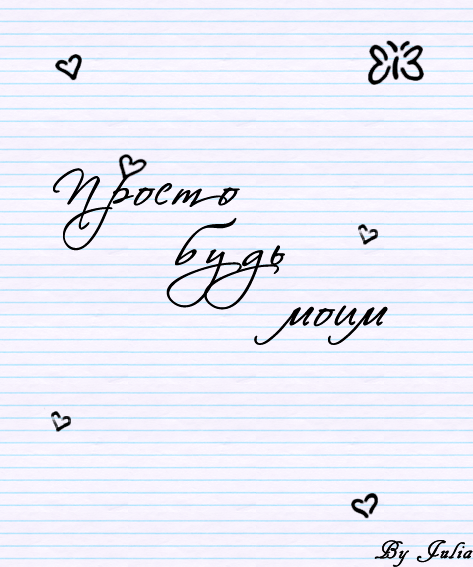 Просто
будь
моим
By Julia